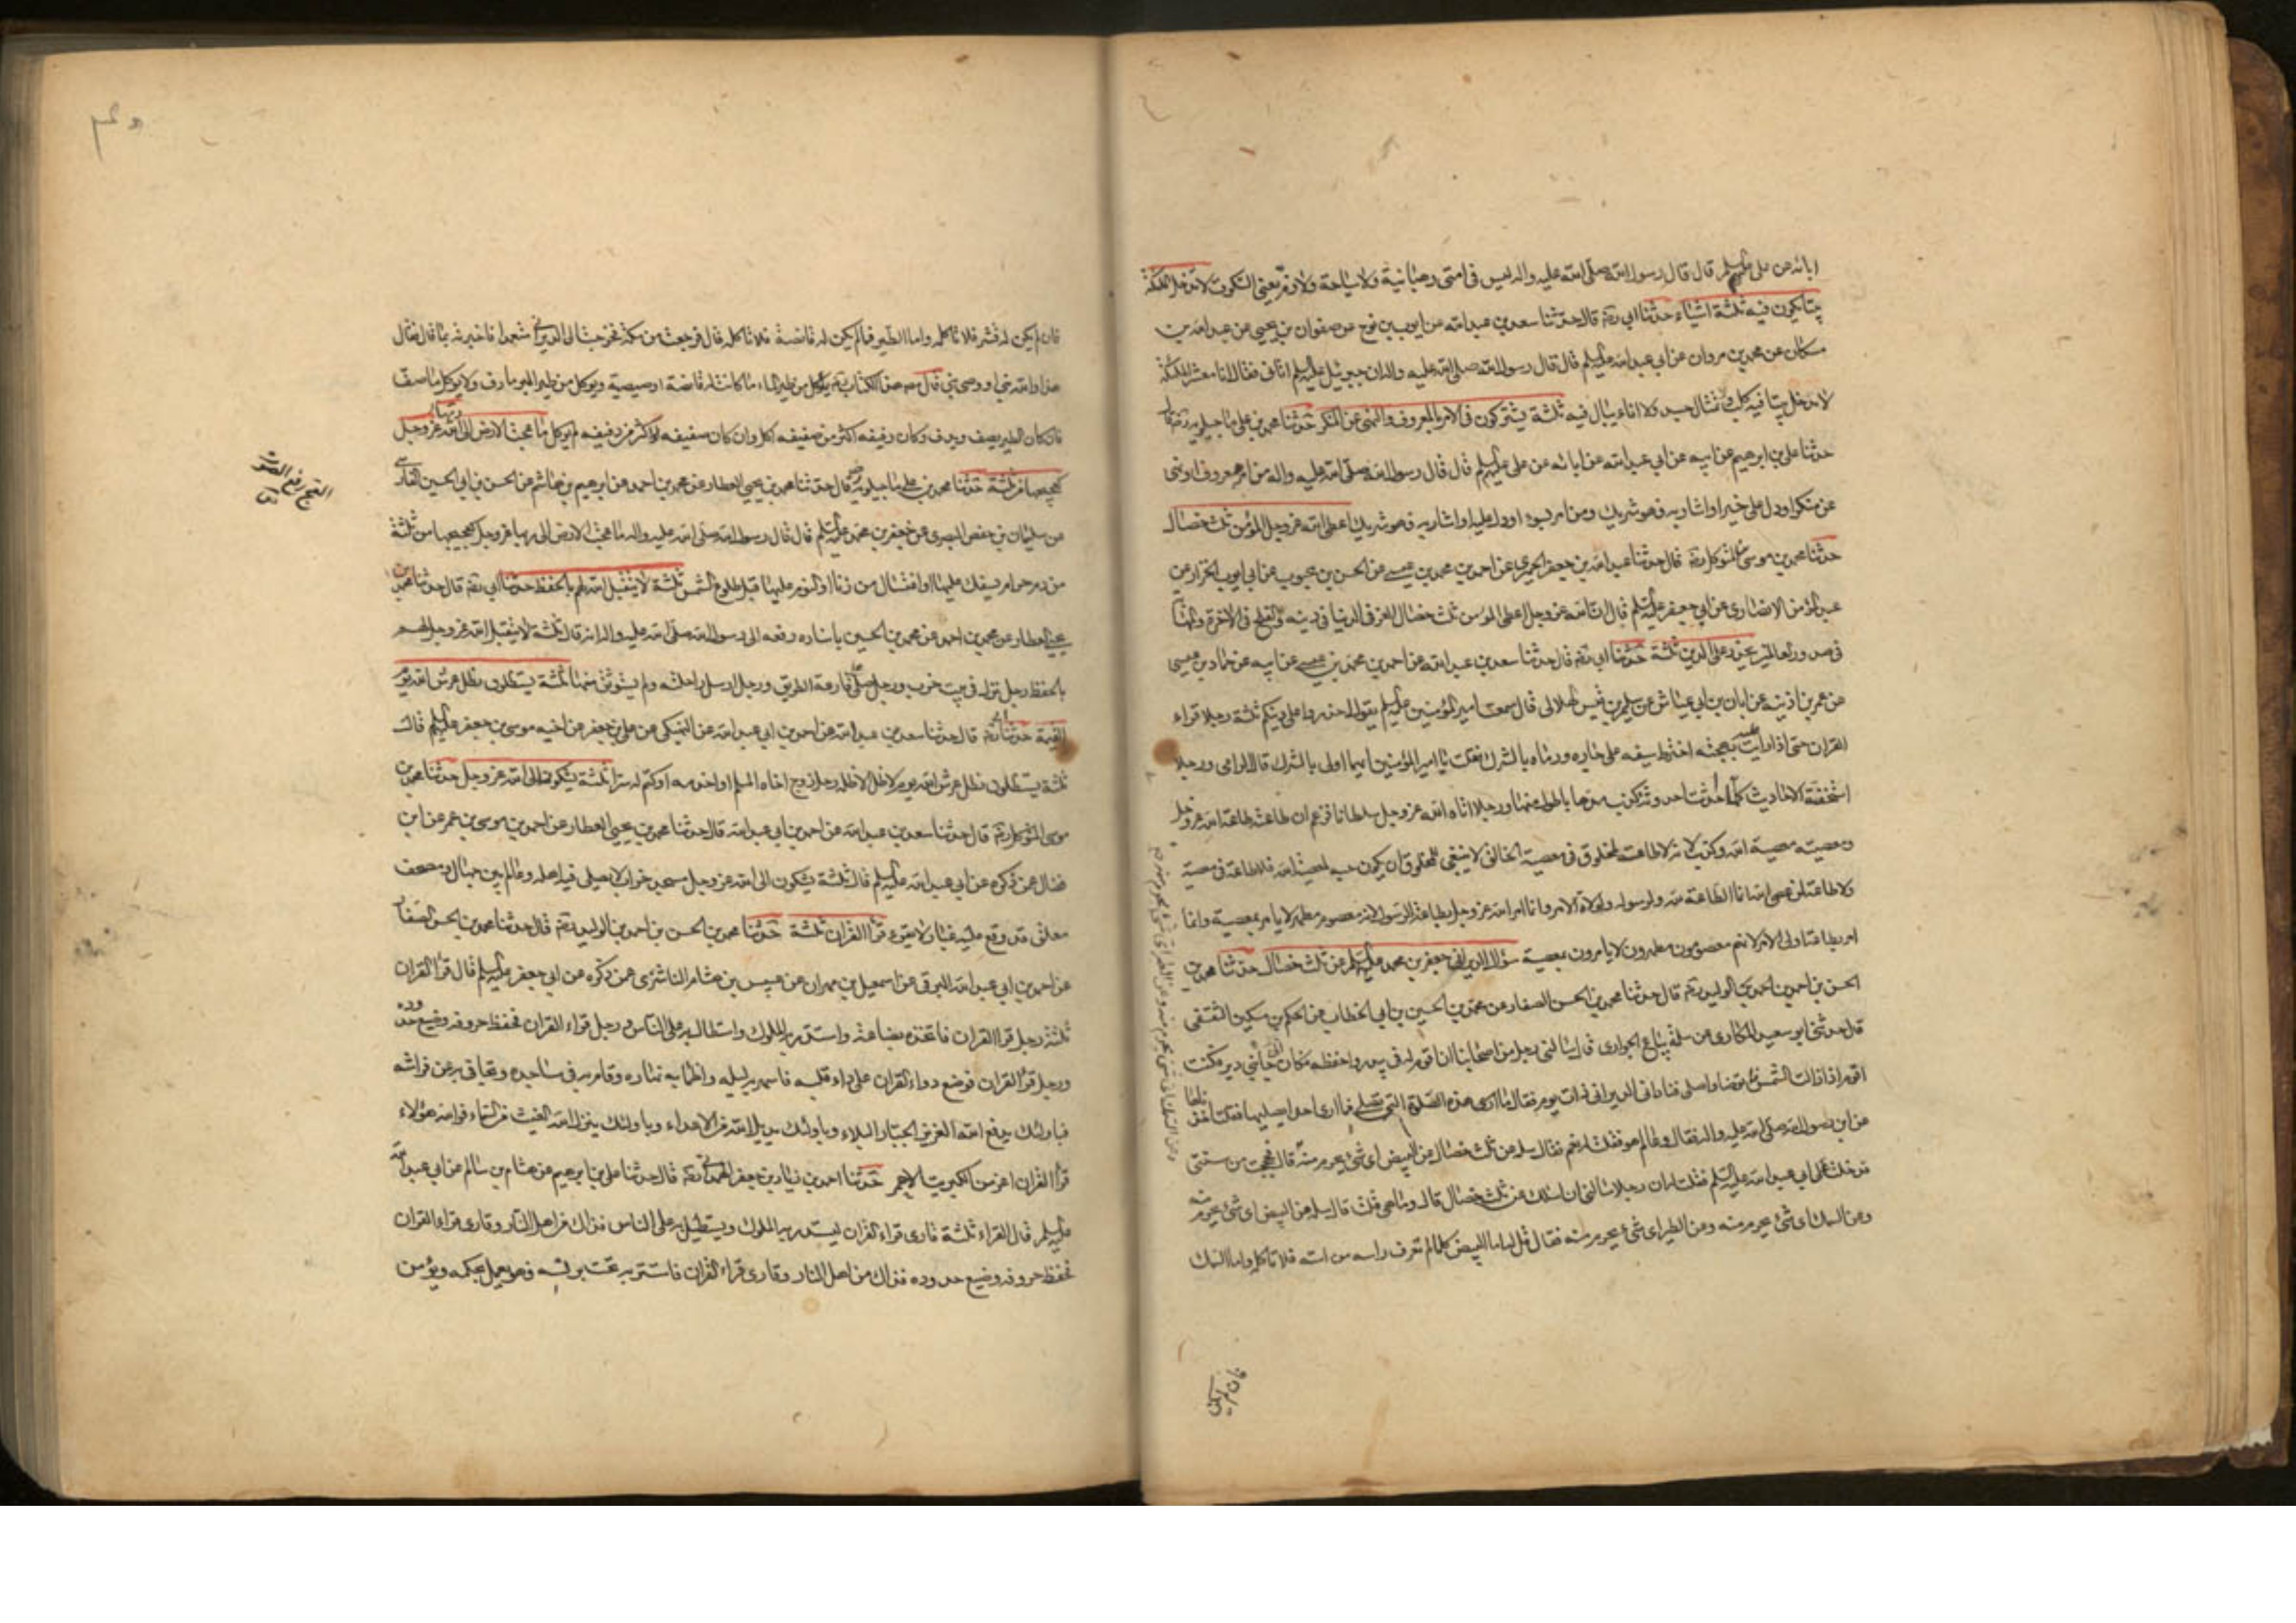 ابائه عن علي عليهم السلم قال قال رسول الله صلى الله عليه واله ليس في امتي رهبانية ولا سياحة ولا زم يعني السكوت لا تدخل الملئكة
بيتا يكون فيه ثلثة اشياء حدثنا ابي ره قال حدثنا سعد بن عبد الله عن ايوب بن نوح عن صفوان بن يحيى عن عبد الله بن
مسكان عن محمد بن مروان عن ابي عبد الله عليه السلم قال قال رسول الله صلى الله عليه واله ان جبرئيل عليه السلم اتاني فقال انا معشر الملئكة
لا ندخل بيتا فيه كلب ولا تمثال جسد ولا اناء يبال فيه ثلثة يشتركون في الامر بالمعروف والنهي عن المنكر حدثنا محمد بن علي ماجيلويه ره قال
حدثنا علي بن ابرهيم عن ابيه عن ابي عبد الله عن ابائه عن علي عليه السلم قال قال رسول الله صلى الله عليه واله من امر بمعروف او نهى
عن منكر او دل على خير او اشار به فهو شريك ومن امر بسوء او دل عليه او اشار به فهو شريك اعطى الله عز وجل المؤمن ثلث خصال
حدثنا محمد بن موسى بن المتوكل ره قال حدثنا عبد الله بن جعفر الحميري عن احمد بن محمد بن عيسى عن الحسن بن محبوب عن ابي ايوب الخزاز عن
عبد المؤمن الانصاري عن ابي جعفر عليه السلم قال ان الله عز وجل اعطى المؤمن ثلث خصال العز في الدنيا في دينه والفلج في الاخرة والمهابة
في صدور العالمين يحذر على الدين ثلثة حدثنا ابي ره قال حدثنا سعد بن عبد الله عن احمد بن محمد بن عيسى عن ابيه عن حماد بن عيسى
عن عمر بن اذينه عن ابان بن ابي عياش عن سليم بن قيس الهلالي قال سمعت امير المؤمنين عليه السلم يقول احذروا على دينكم ثلثة رجلا قراء
القران حتى اذا رايت عليه بهجته اخترط سيفه على جاره ورماه بالشرك فقلت يا امير المؤمنين ايهما اولى بالشرك قال الرامي ورجلا
استخفته الاحاديث كلما احدثت احدوثة كذب مدها باطول منها ورجلا اتاه الله عز وجل سلطانا فزعم ان طاعته طاعة الله عز وجل
ومعصيته معصية الله وكذب لانه لا طاعة لمخلوق في معصية الخالق لا ينبغي للمخلوق ان يكون حبه لمعصية الله فلا طاعة في معصية
ولا طاعة لمن عصى الله انما الطاعة لله ولرسوله ولولاة الامر وانما امر الله عز وجل بطاعة الرسول لانه معصوم مطهر لا يامر بمعصية وانما
امر بطاعة اولى الامر لانهم معصومون مطهرون لا يامرون بمعصية سؤال الديراني جعفر بن محمد عليه السلم عن ثلث خصال حدثنا محمد بن
الحسن بن احمد بن الوليد ره قال حدثنا محمد بن الحسن الصفار عن محمد بن الحسين بن ابي الخطاب عن الحكم بن مسكين الثقفي
قال حدثني ابو سعيد المكاري عن سلمة بياع الجواري قال سالني رجل من اصحابنا ان اقوم له في بيدر واحفظه فكان الى جانبي دير فكنت
اقوم اذا زالت الشمس فاتوضا واصلي فناداني الديراني ذات يوم فقال ما ارى هذه الصلوة التي تصلي فما ارى احدا يصليها فقلت اخذناها
عن ابن رسول الله صلى الله عليه واله فقال وعالم هو فقلت له نعم فقال سله عن ثلث خصال عن البيض اى شئ يحرم منه قال فحججت من سنتي
فدخلت على ابي عبد الله عليه السلم فقلت له ان رجلا سالني ان اسئلك عن ثلث خصال قال وما هي قلت قال سله عن البيض اى شئ يحرم منه
وعن السمك اى شئ يحرم منه وعن الطير اى شئ يحرم منه فقال قل له اما البيض كلما لم تعرف راسه من استه فلا تاكله واما السمك
فان لم يكن
فان لم يكن له قشر فلا تاكله واما الطير فما لم يكن له قانصة فلا تاكله قال فرجعت من مكة فخرجت الى الديراني متعمدا فاخبرته بما قال فقال
هذا والله نبي او وصي نبي قال مصنف هذا الكتاب ره يؤكل من طير الماء ما كانت له قانصة او صيصية ويوكل من طير البر ما دف ولا يوكل ما صف
فان كان الطير يصف ويدف وكان دفيفه اكثر من صفيفه اكل وان كان صفيفه اكثر من دفيفه لم يوكل ما عجت الارض الى ربها عز وجل
كعجيجها من ثلثة حدثنا محمد بن علي ماجيلويه ره قال حدثنا محمد بن يحيى العطار عن محمد بن احمد عن ابرهيم بن هاشم عن الحسن بن ابي الحسين الفارسي
عن سليمان بن حفص البصري عن جعفر بن محمد عليه السلم قال قال رسول الله صلى الله عليه واله ما عجت الارض الى ربها عز وجل كعجيجها من ثلثة
من دم حرام يسفك عليها او اغتسال من زنا او النوم عليها قبل طلوع الشمس ثلثة لا يتقبل الله لهم بالحفظ حدثنا ابي ره قال حدثنا محمد بن
يحيى العطار عن محمد بن احمد عن محمد بن الحسين باسناده رفعه الى رسول الله صلى الله عليه واله انه قال ثلثة لا يتقبل الله عز وجل لهم
بالحفظ رجل نزل في بيت خرب ورجل صلى على قارعة الطريق ورجل ارسل راحلته ولم يستوثق منها ثلثة يستظلون بظل عرش الله يوم
القيمة حدثنا ابي ره قال حدثنا سعد بن عبد الله عن احمد بن ابي عبد الله عن النهيكي عن علي بن جعفر عن اخيه موسى بن جعفر عليه السلم قال
ثلثة يستظلون بظل عرش الله يوم لا ظل الا ظله رجل زوج اخاه المسلم او اخدمه او كتم له سرا ثلثة يشكون الى الله عز وجل حدثنا محمد بن
موسى المتوكل ره قال حدثنا سعد بن عبد الله عن احمد بن ابي عبد الله قال حدثنا محمد بن يحيى العطار عن احمد بن موسى بن عمر عن ابن
فضال عمن ذكره عن ابي عبد الله عليه السلم قال ثلثة يشكون الى الله عز وجل مسجد خراب لا يصلي فيه اهله وعالم بين جهال ومصحف
معلق قد وقع عليه غبار لا يقرء قراء القران ثلثة حدثنا محمد بن الحسن بن احمد بن الوليد ره قال حدثنا محمد بن الحسن الصفار
عن احمد بن ابي عبد الله البرقي عن اسمعيل بن مهران عن عبيس بن هشام الناشري عمن ذكره عن ابي جعفر عليه السلم قال قراء القران
ثلثة رجل قرا القران فاتخذه بضاعة واستدر به الملوك واستطال به على الناس ورجل قراء القران فحفظ حروفه وضيع حدوده
ورجل قرا القران فوضع دواء القران على داء قلبه فاسهر به ليله واظمأ به نهاره وقام به في مساجده وتجافى به عن فراشه
فباولئك يدفع الله العزيز الجبار البلاء وباولئك يديل الله من الاعداء وباولئك ينزل الله الغيث من السماء فوالله هؤلاء
قراء القران اعز من الكبريت الاحمر حدثنا احمد بن زياد بن جعفر الهمداني ره قال حدثنا علي بن ابرهيم عن هشام بن سالم عن ابي عبد الله
عليه السلم قال القراء ثلثة قارى قراء القران ليستدر به الملوك ويستطيل به على الناس فذاك من اهل النار وقارى قراء القران
فحفظ حروفه وضيع حدوده فذاك من اهل النار وقارى قراء القران فاستتر به تحت برنسه فهو يعمل بمحكمه ويؤمن
العج رفع الصوت